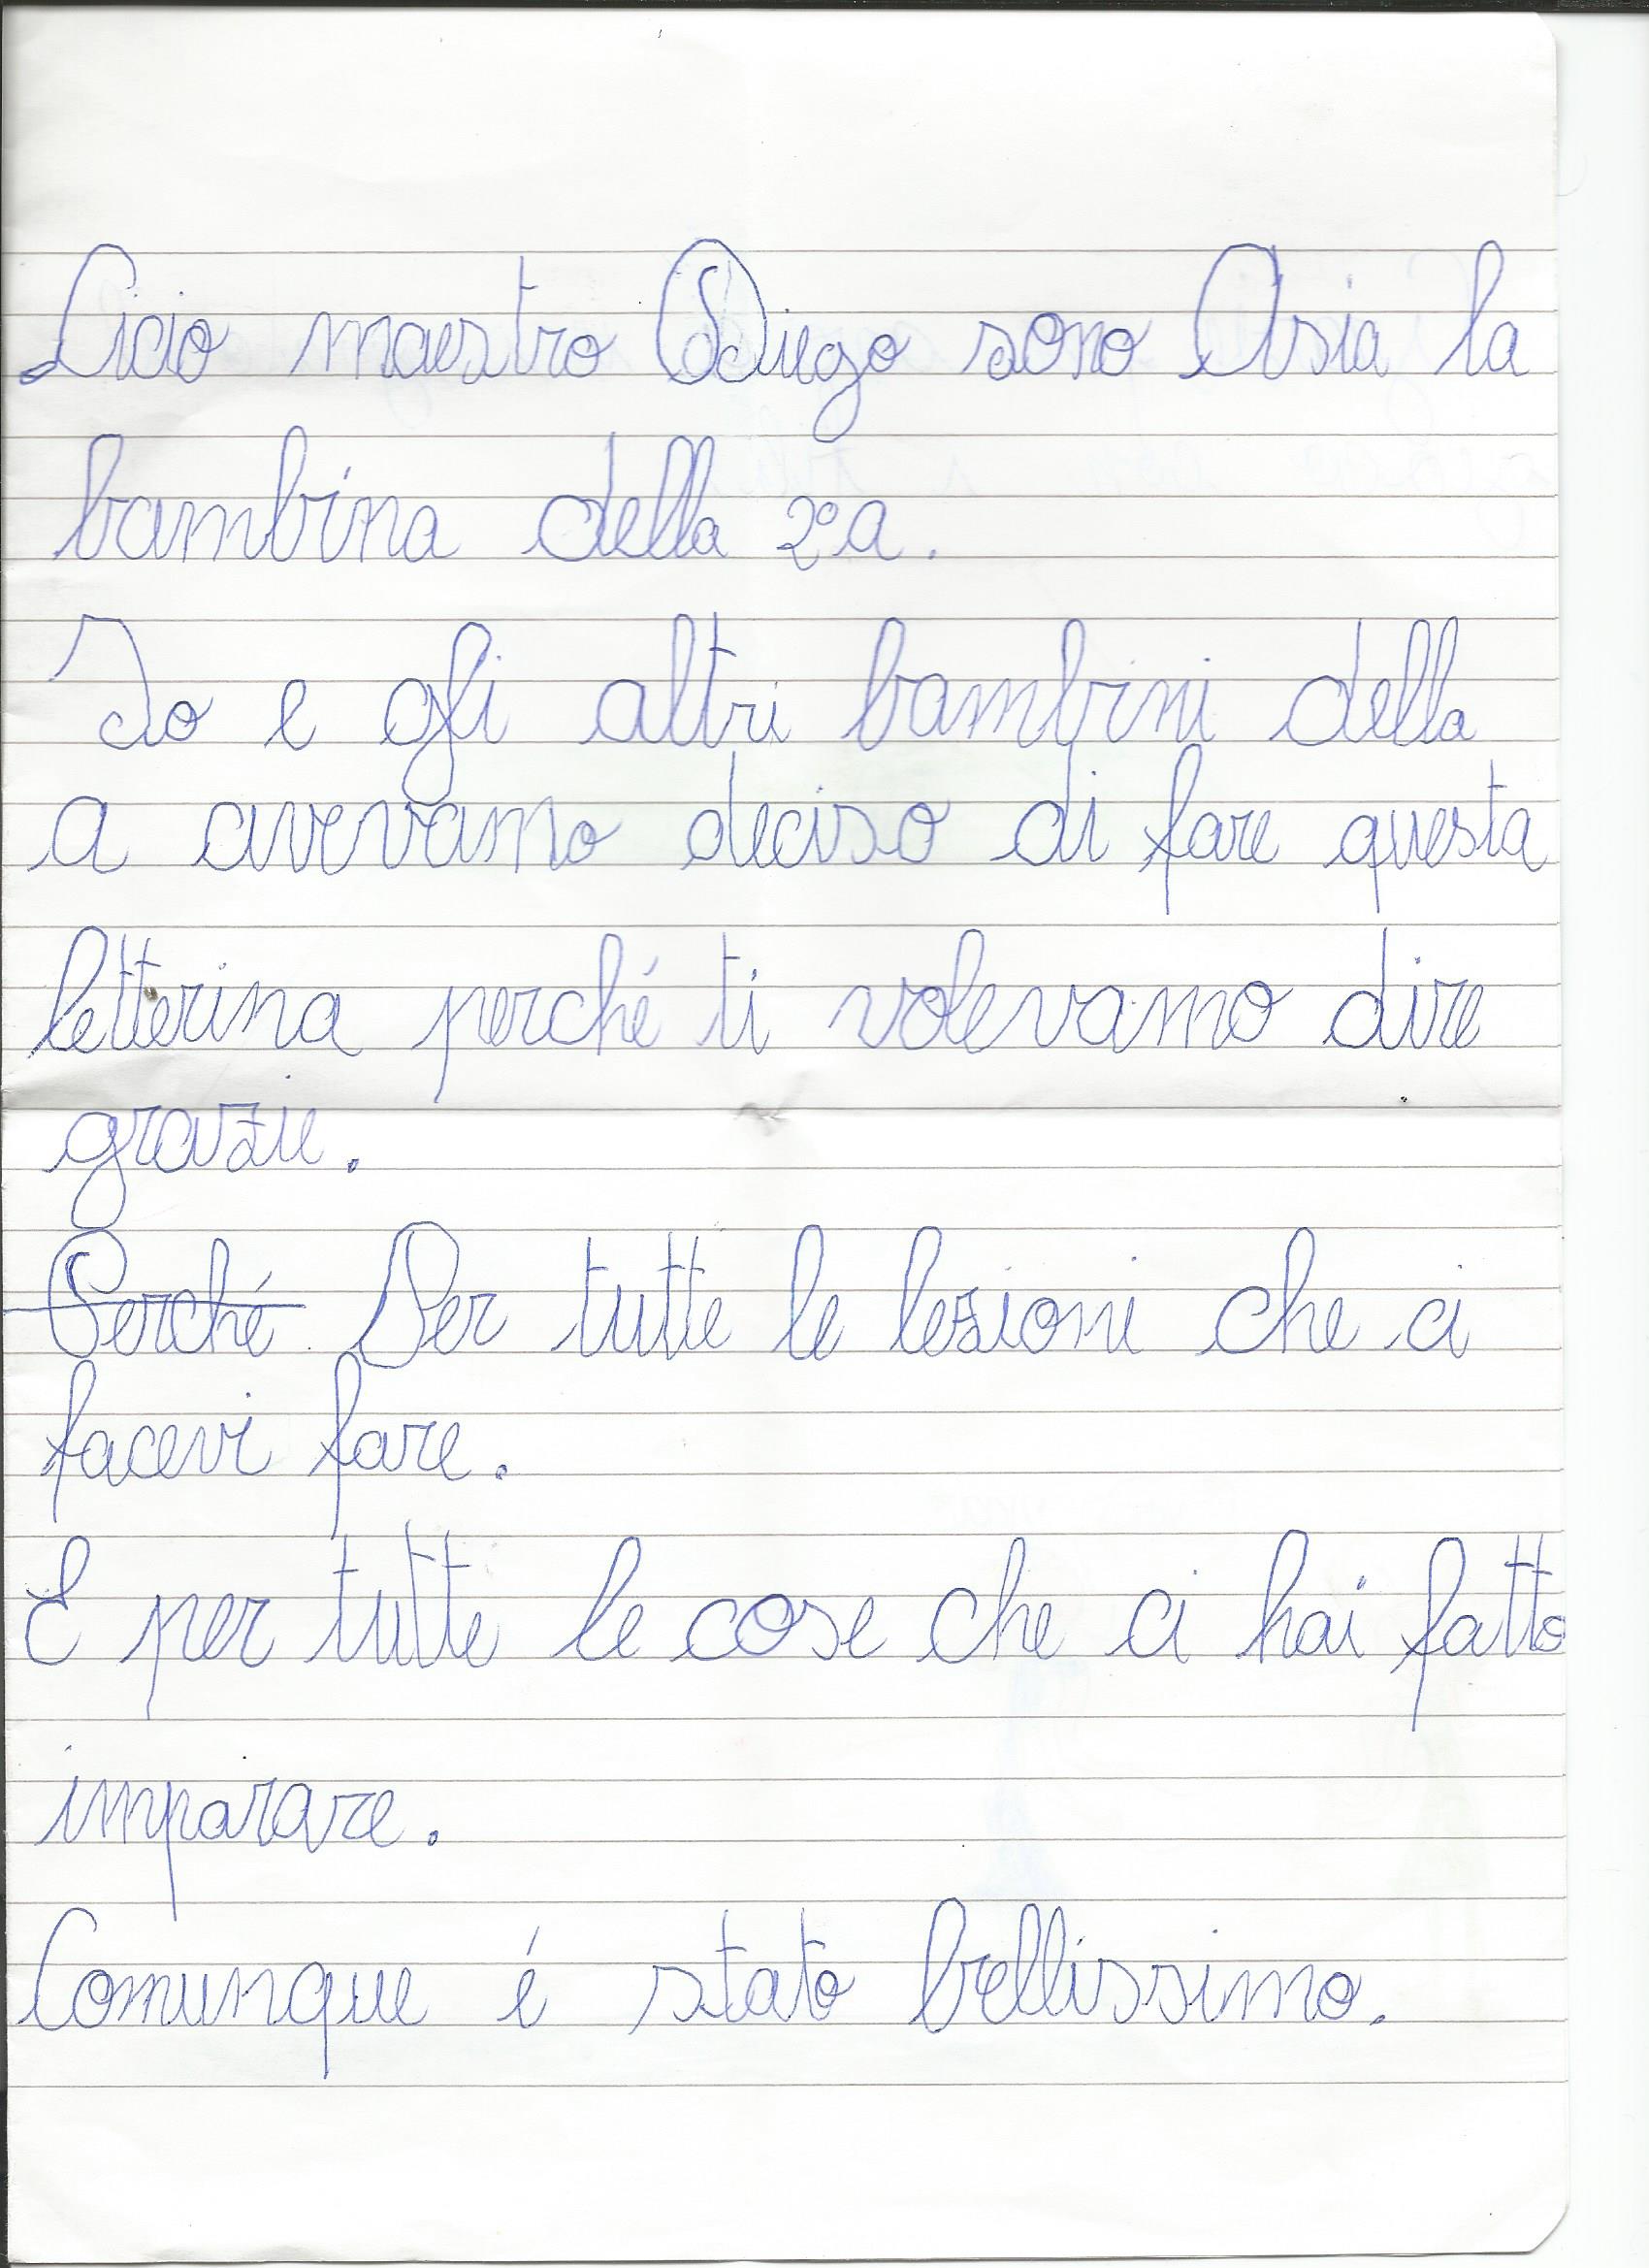 Ciao maestro Diego sono Asia la
bambina della 2°a.
Io e gli altri bambini della
a avevamo deciso di fare questa
letterina perché ti volevamo dire
grazie.
Perché Per tutte le lezioni che ci
facevi fare.
E per tutte le cose che ci hai fatto
imparare.
Comunque é stato bellissimo.